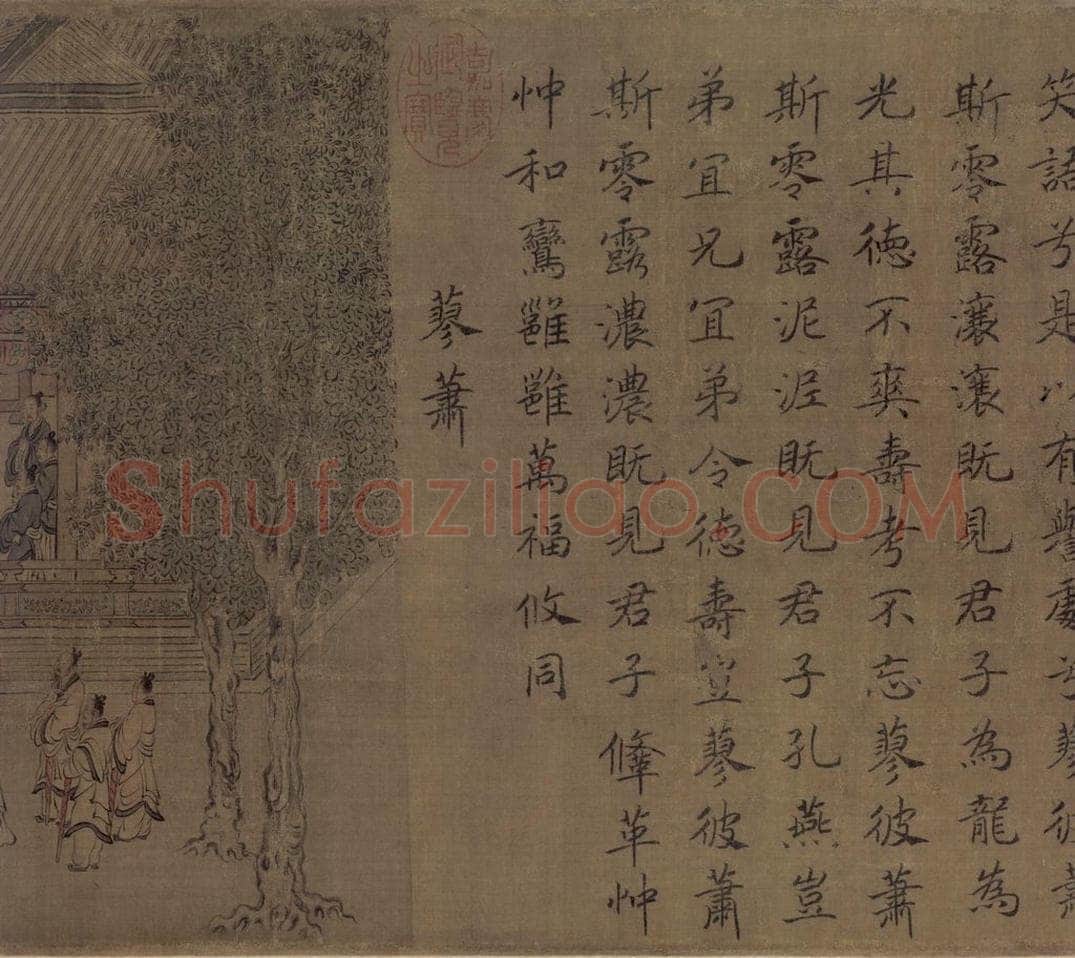 笑語兮是以有譽處兮蓼彼蕭
斯零露瀼瀼既見君子為龍為
光其徳不爽壽考不忘蓼彼蕭
斯零露泥泥既見君子孔燕豈
弟冝兄冝弟令徳壽豈蓼彼蕭
斯零露濃濃既見君子鞗革忡
忡和鸞雝雝萬福攸同
蓼蕭
嘉慶御覽之寶
Shufaziliao.COM